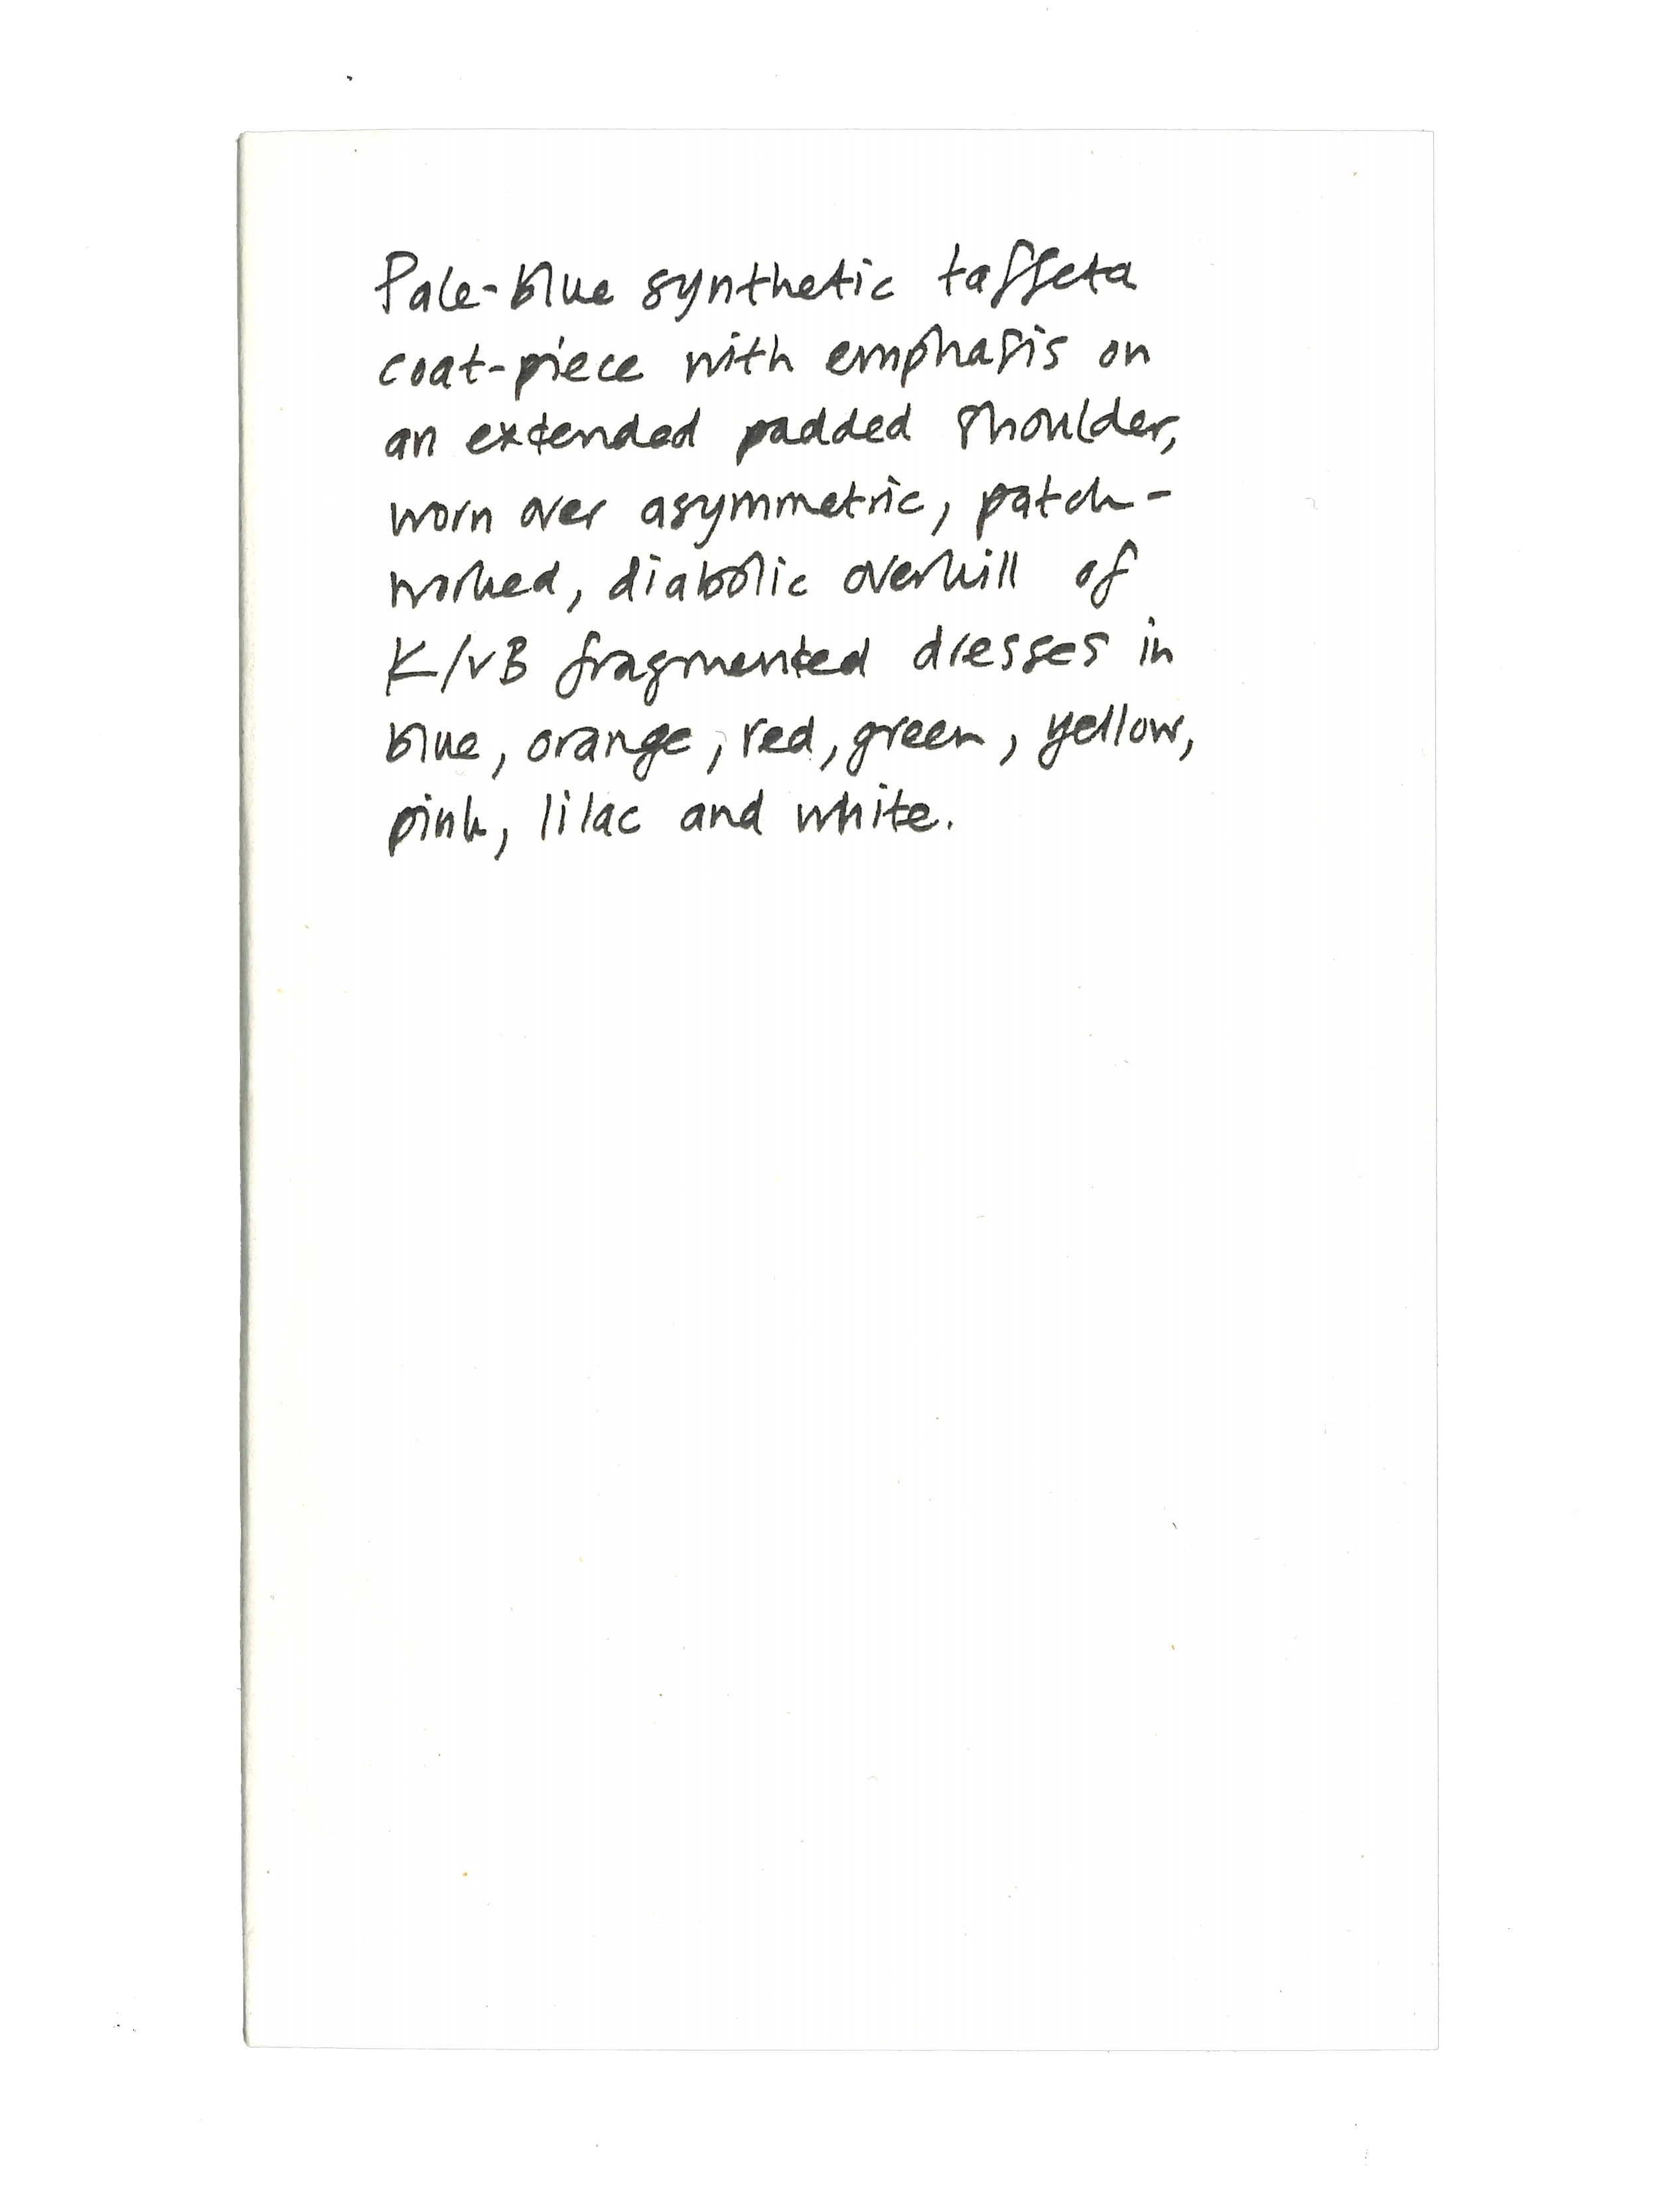 Pale-blue synthetic taffeta
coat-piece with emphasis on
an extended padded shoulder,
worn over asymmetric, patch-
worked, diabolic overkill of
K/vB fragmented dresses in
blue, orange, red, green, yellow,
pink, lilac and white.